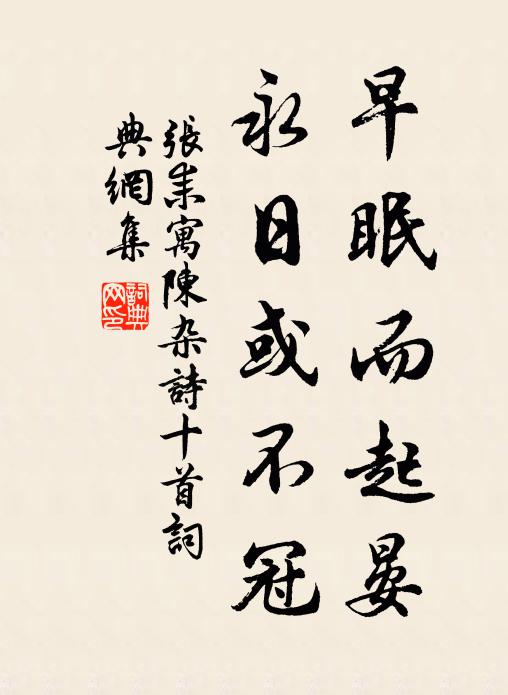 早眠而起晏
永日或不冠
張耒寓陳杂詩十首詞
典網集
詞典
网印